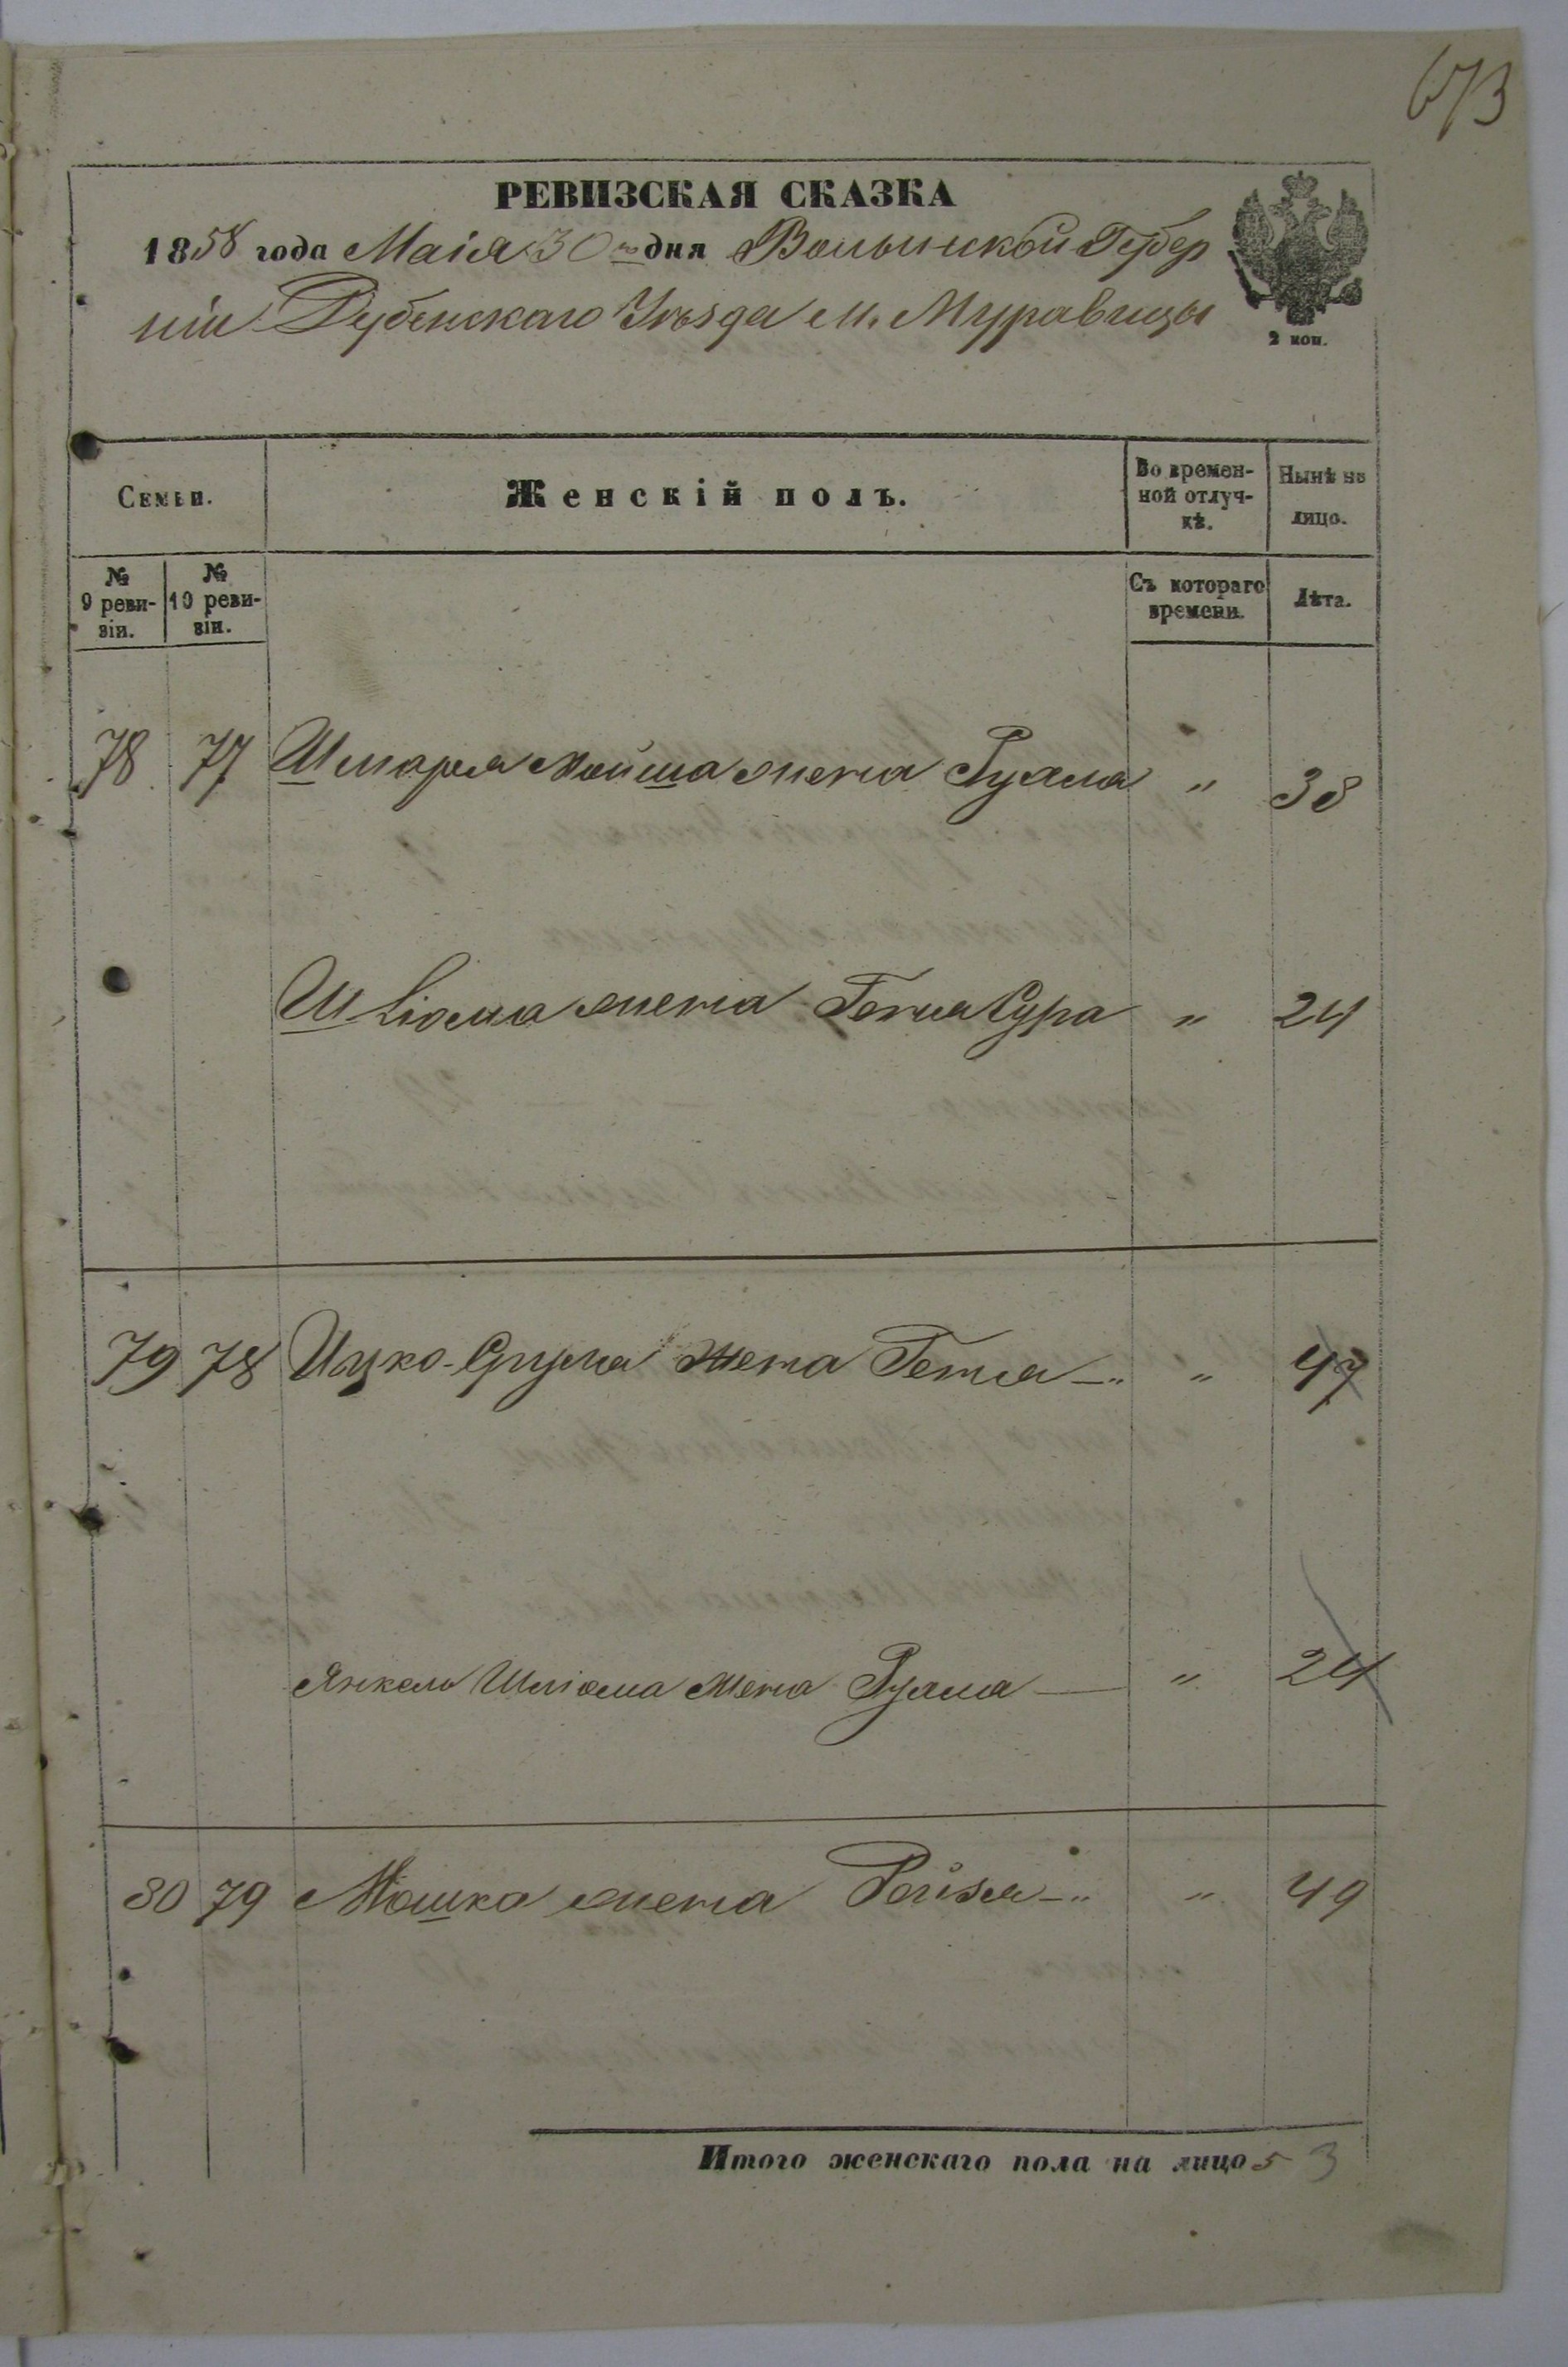 673
РЕВИЗСКАЯ СКАЗКА
1858 года Маія 30 дня Волынской Губер
ніи Дубенскаго Уѣзда м. Муравицы
2 коп.
Семьи.
Женскій полъ.
Во времен-
ной отлуч-
кѣ.
Нынѣ на
лицо.
№
9 реви-
зіи.
№
10 реви-
зіи.
Съ котораго
времени.
Лѣта.
78 77 Шмаря Мойша жена Рухля " 38
Шліома жена Геня Сура " 24
79 78 Ицко-Срула жена Геня " 47
Янкель Шліома жена Рухля " 24
80 79 Мошка жена Рейзя " 49
Итого женскаго пола на лицо 5 3